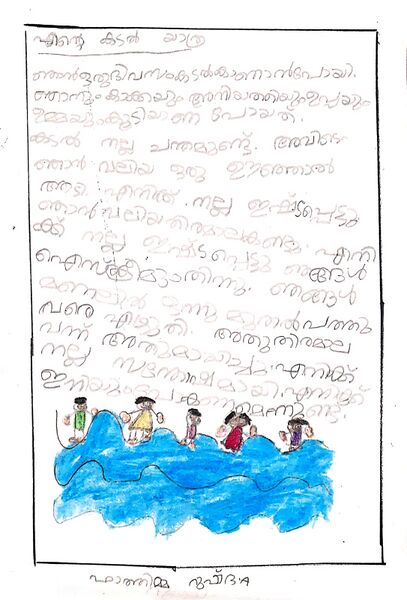 എന്റെ കടൽ യാത്ര
ഞാൻ ഒരു ദിവസം കടൽ കാണാൻ പോയി.
ഞാനും കാക്കയും അനിയത്തിയും ഉപ്പയും
ഉമ്മയും കൂടിയാണ് പോയത്.
കടൽ നല്ല ചന്തമുണ്ട്. അവിടെ
ഞാൻ വലിയ ഒരു ഊഞ്ഞാൽ
ആടി എനിക്ക് നല്ല ഇഷ്ടപ്പെട്ടു
ഞാൻ വലിയ തിരമാല കണ്ടു. എനി
ക്ക് നല്ല ഇഷ്ടപ്പെട്ടു ഞങ്ങൾ
ഐസ്ക്രീം തിന്നു. ഞങ്ങൾ
മണലിൽ ഒന്നു മുതൽ പത്തു
വരെ എഴുതി. അതു തിരമാല
വന്ന് അതു മായിച്ചു. എനിക്ക്
നല്ല സന്തോഷമായി. എനിക്ക്
ഇനിയും പോകണമെന്നുണ്ട്.
ഫാത്തിമ്മ